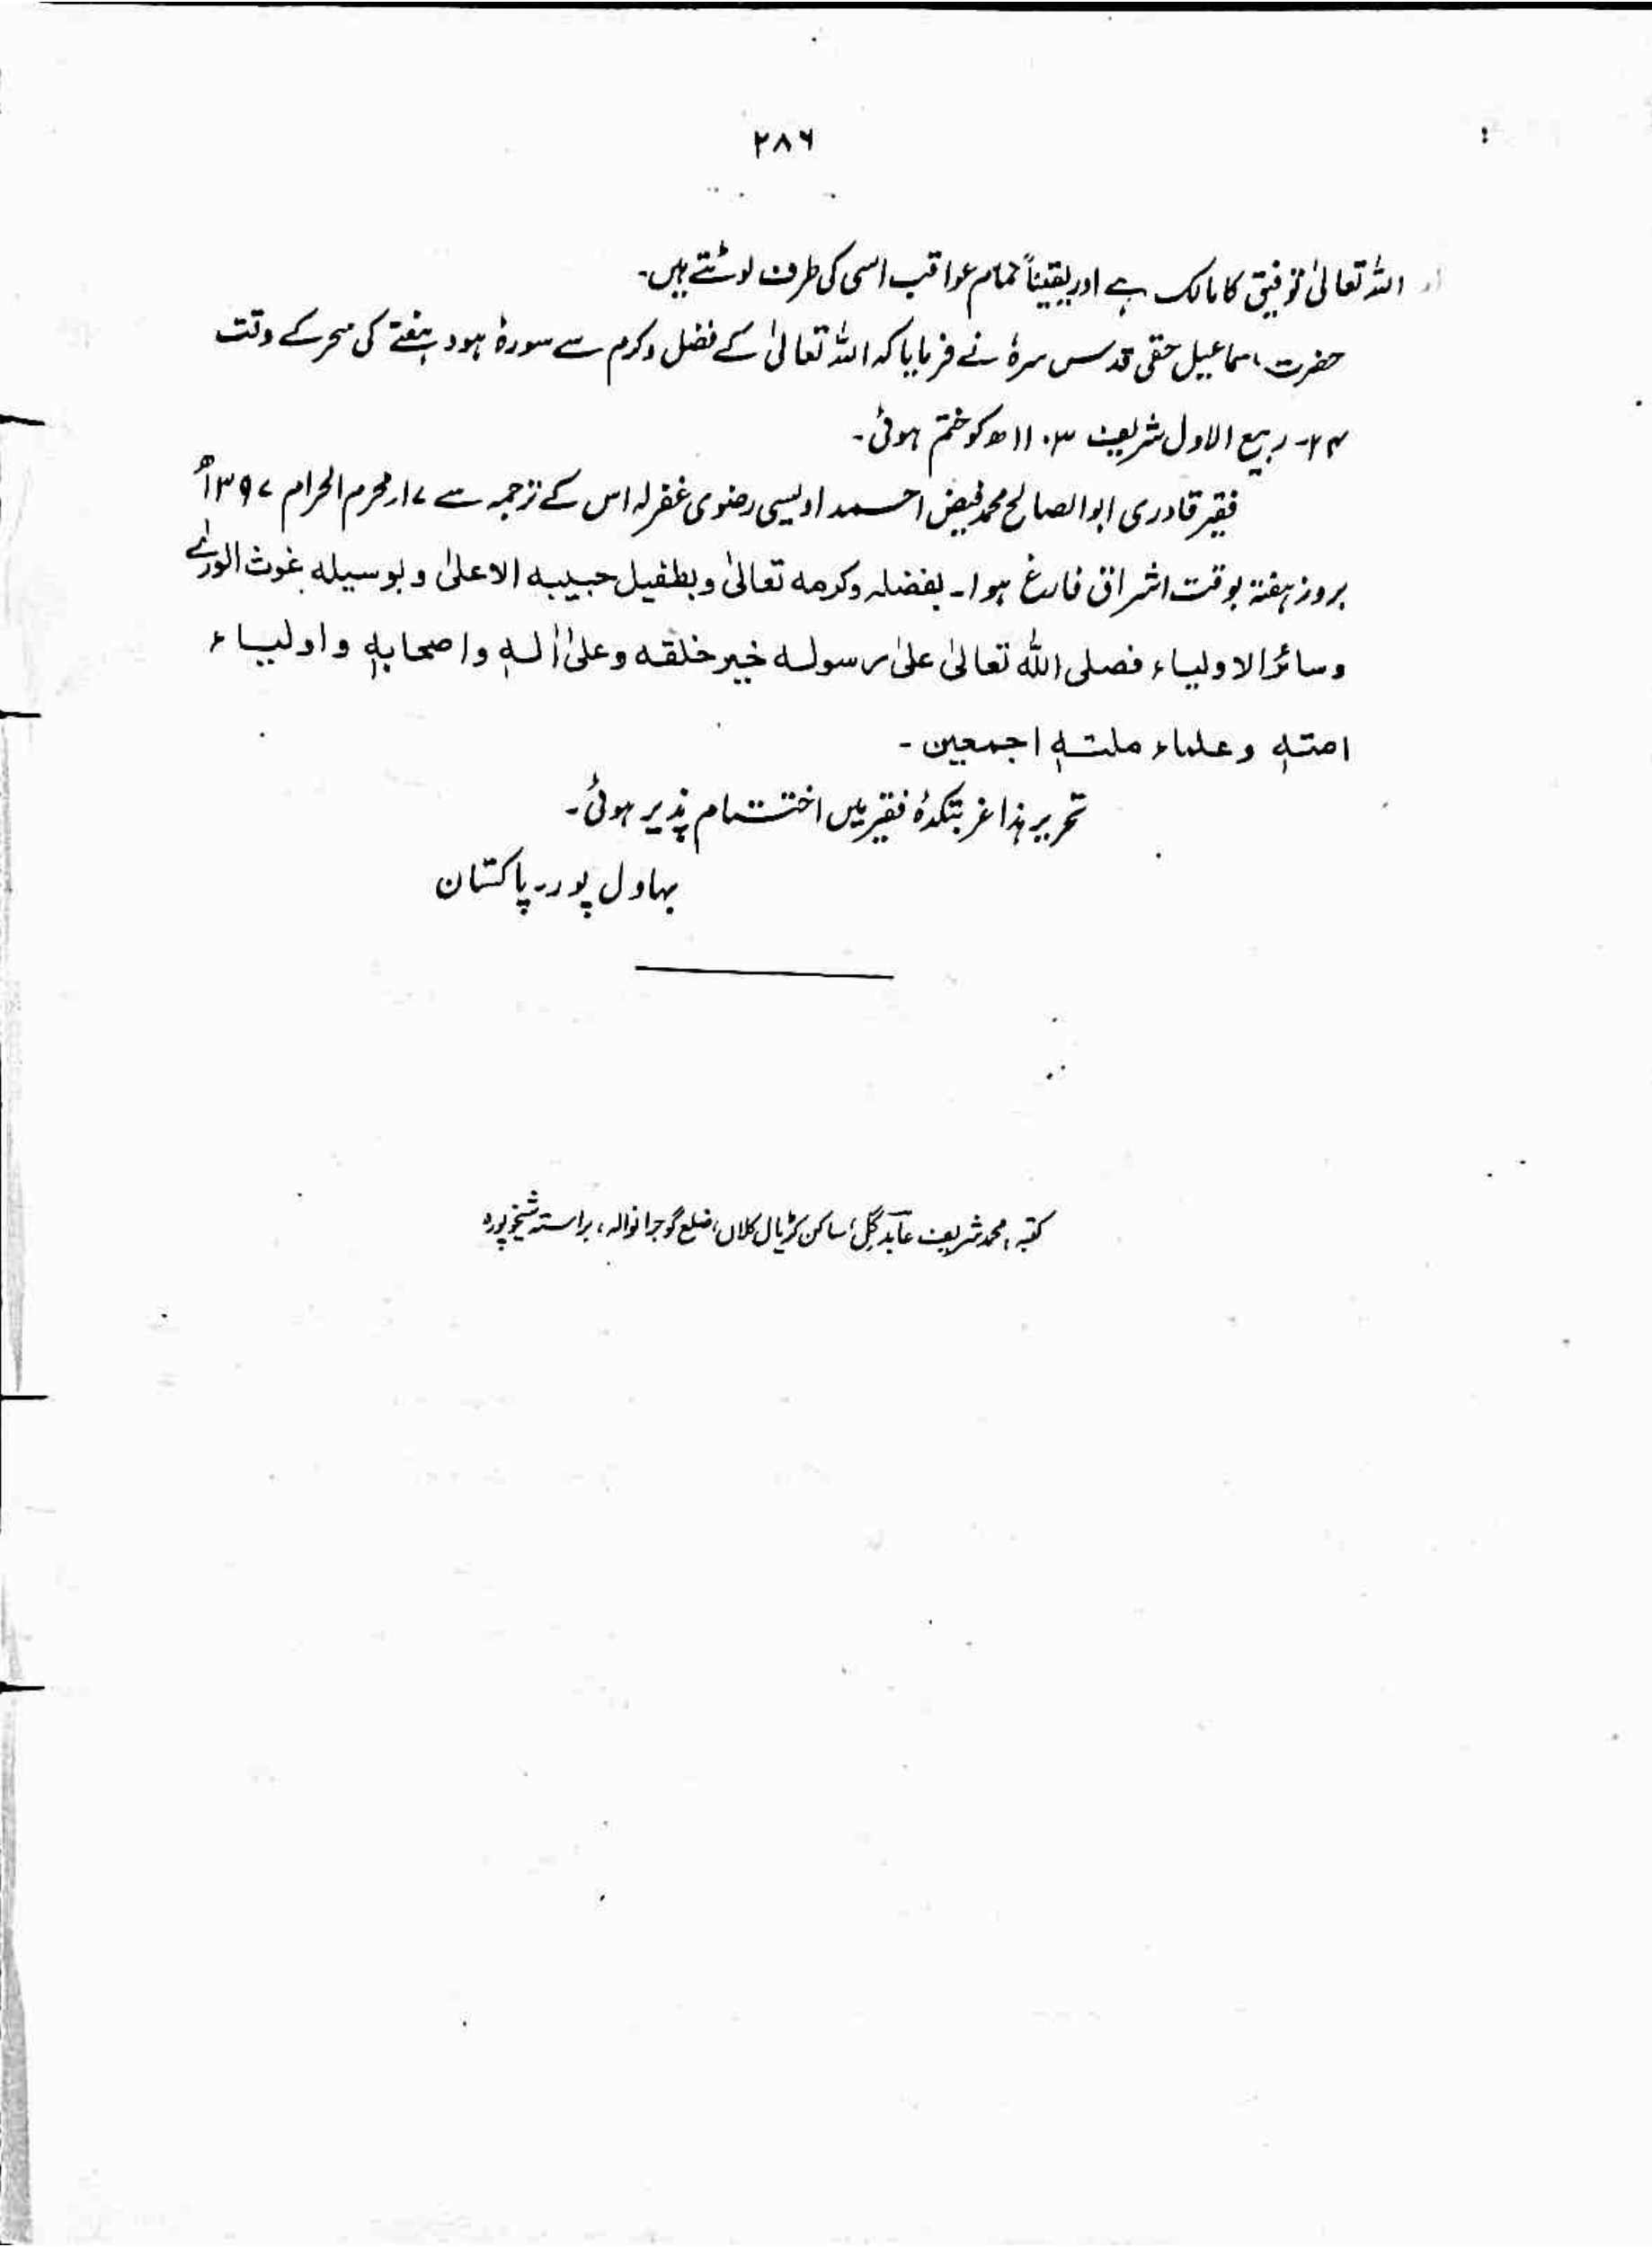 ۲۸۶
اللہ تعالیٰ توفیق کا مالک ہے اور یقیناً تمام عواقب اسی کی طرف لوٹتے ہیں۔
حضرت اسماعیل حقی قدس سرہٗ نے فرمایا کہ اللہ تعالیٰ کے فضل و کرم سے سورۂ ہود ہفتے کی سحر کے وقت
۲۴۔ ربیع الاول شریف ۱۱۰۳ھ کو ختم ہوئی۔
فقیر قادری ابوالصالح محمد فیض احمد اویسی رضوی غفرلہ اس کے ترجمہ سے ۱۷؍ محرم الحرام ۱۳۹۷ھ
بروز ہفتہ بوقت اشراق فارغ ہوا۔ بفضلہ وکرمہ تعالیٰ وبطفیل حبیبہ الاعلیٰ وبوسیلہ غوث الورٰے
وسائر الاولیاء فصلی اللہ تعالیٰ علیٰ رسولہ خیر خلقہ وعلیٰ اٰلہٖ واصحابہٖ واولیاء
امتہٖ وعلماء ملتہٖ اجمعین۔
تحریر ہذا غربتکدۂ فقیر میں اختتام پذیر ہوئی۔
بہاول پور۔ پاکستان
کتبہ: محمد شریف عابد گِل، ساکن کڑیال کلاں، ضلع گوجرانوالہ، براستہ شیخوپورہ